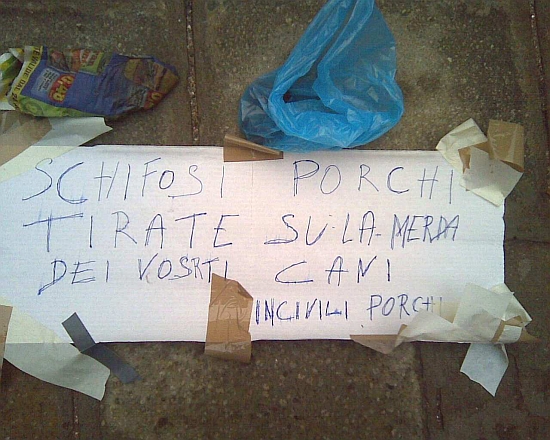 SCHIFOSI PORCHI
TIRATE SU-LA-MERDA
DEI VOSRTI CANI
INCIVILI PORCHI